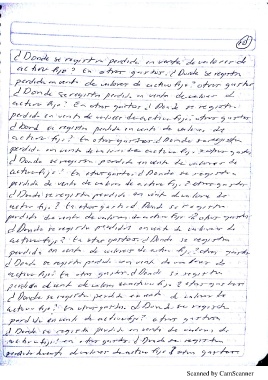 ¿Donde se registra perdida en venta de valores de
activo fijo? En otros gastos. ¿Donde se registra
perdida en venta de valores de activo fijo? otros gastos
¿Donde se registra perdida en venta de valores de
activo fijo? En otros gastos ¿Donde se registra
perdida en venta de valores de activo fijo? otros gastos
¿Donde se registra perdida en venta de valores de
activo fijo? En otros gastos ¿Donde se registra
perdida en venta de valores de activo fijo? otros gastos
¿Donde se registra perdida en venta de valores de
activo fijo? En otros gastos. ¿Donde se registra
perdida de venta de valores de activo fijo? otros gastos
¿Donde se registra perdida en venta de valores de
activo fijo? En otros gastos ¿Donde se registra
perdida de venta de valores de activo fijo? otros gastos
¿Donde se registra perdida en venta de valores de
activo fijo? En otros gastos ¿Donde se registra
perdida en venta de valores de activo fijo? otros gastos
¿Donde se registra perdida en venta de valores de
activo fijo? En otros gastos. ¿Donde se registra
perdida de venta de valores activo fijo? otros gastos
¿Donde se registra perdida en venta de valores de
activo fijo? En otros gastos. ¿Donde se registra
perdida en venta de activo fijo? otros gastos
¿Donde se registra perdida en venta de valores de
activo fijo? En otros gastos. ¿Donde se registra
perdida venta de valores de activo fijo? otros gastos
Scanned by CamScanner